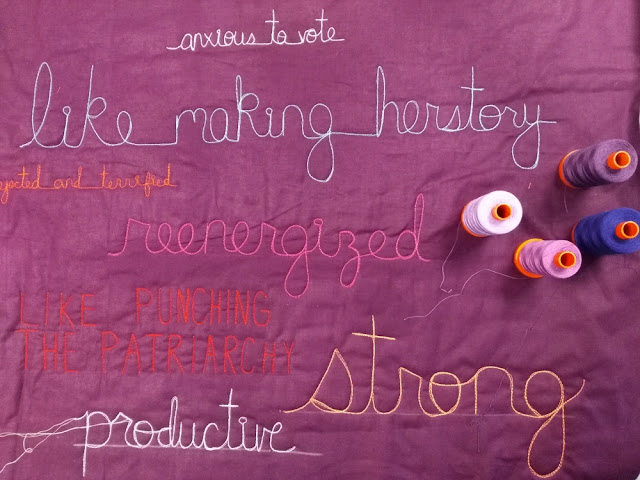 anxious to vote
like making herstory
jected and terrified
reenergized
LIKE PUNCHING
THE PATRIARCHY
strong
productive